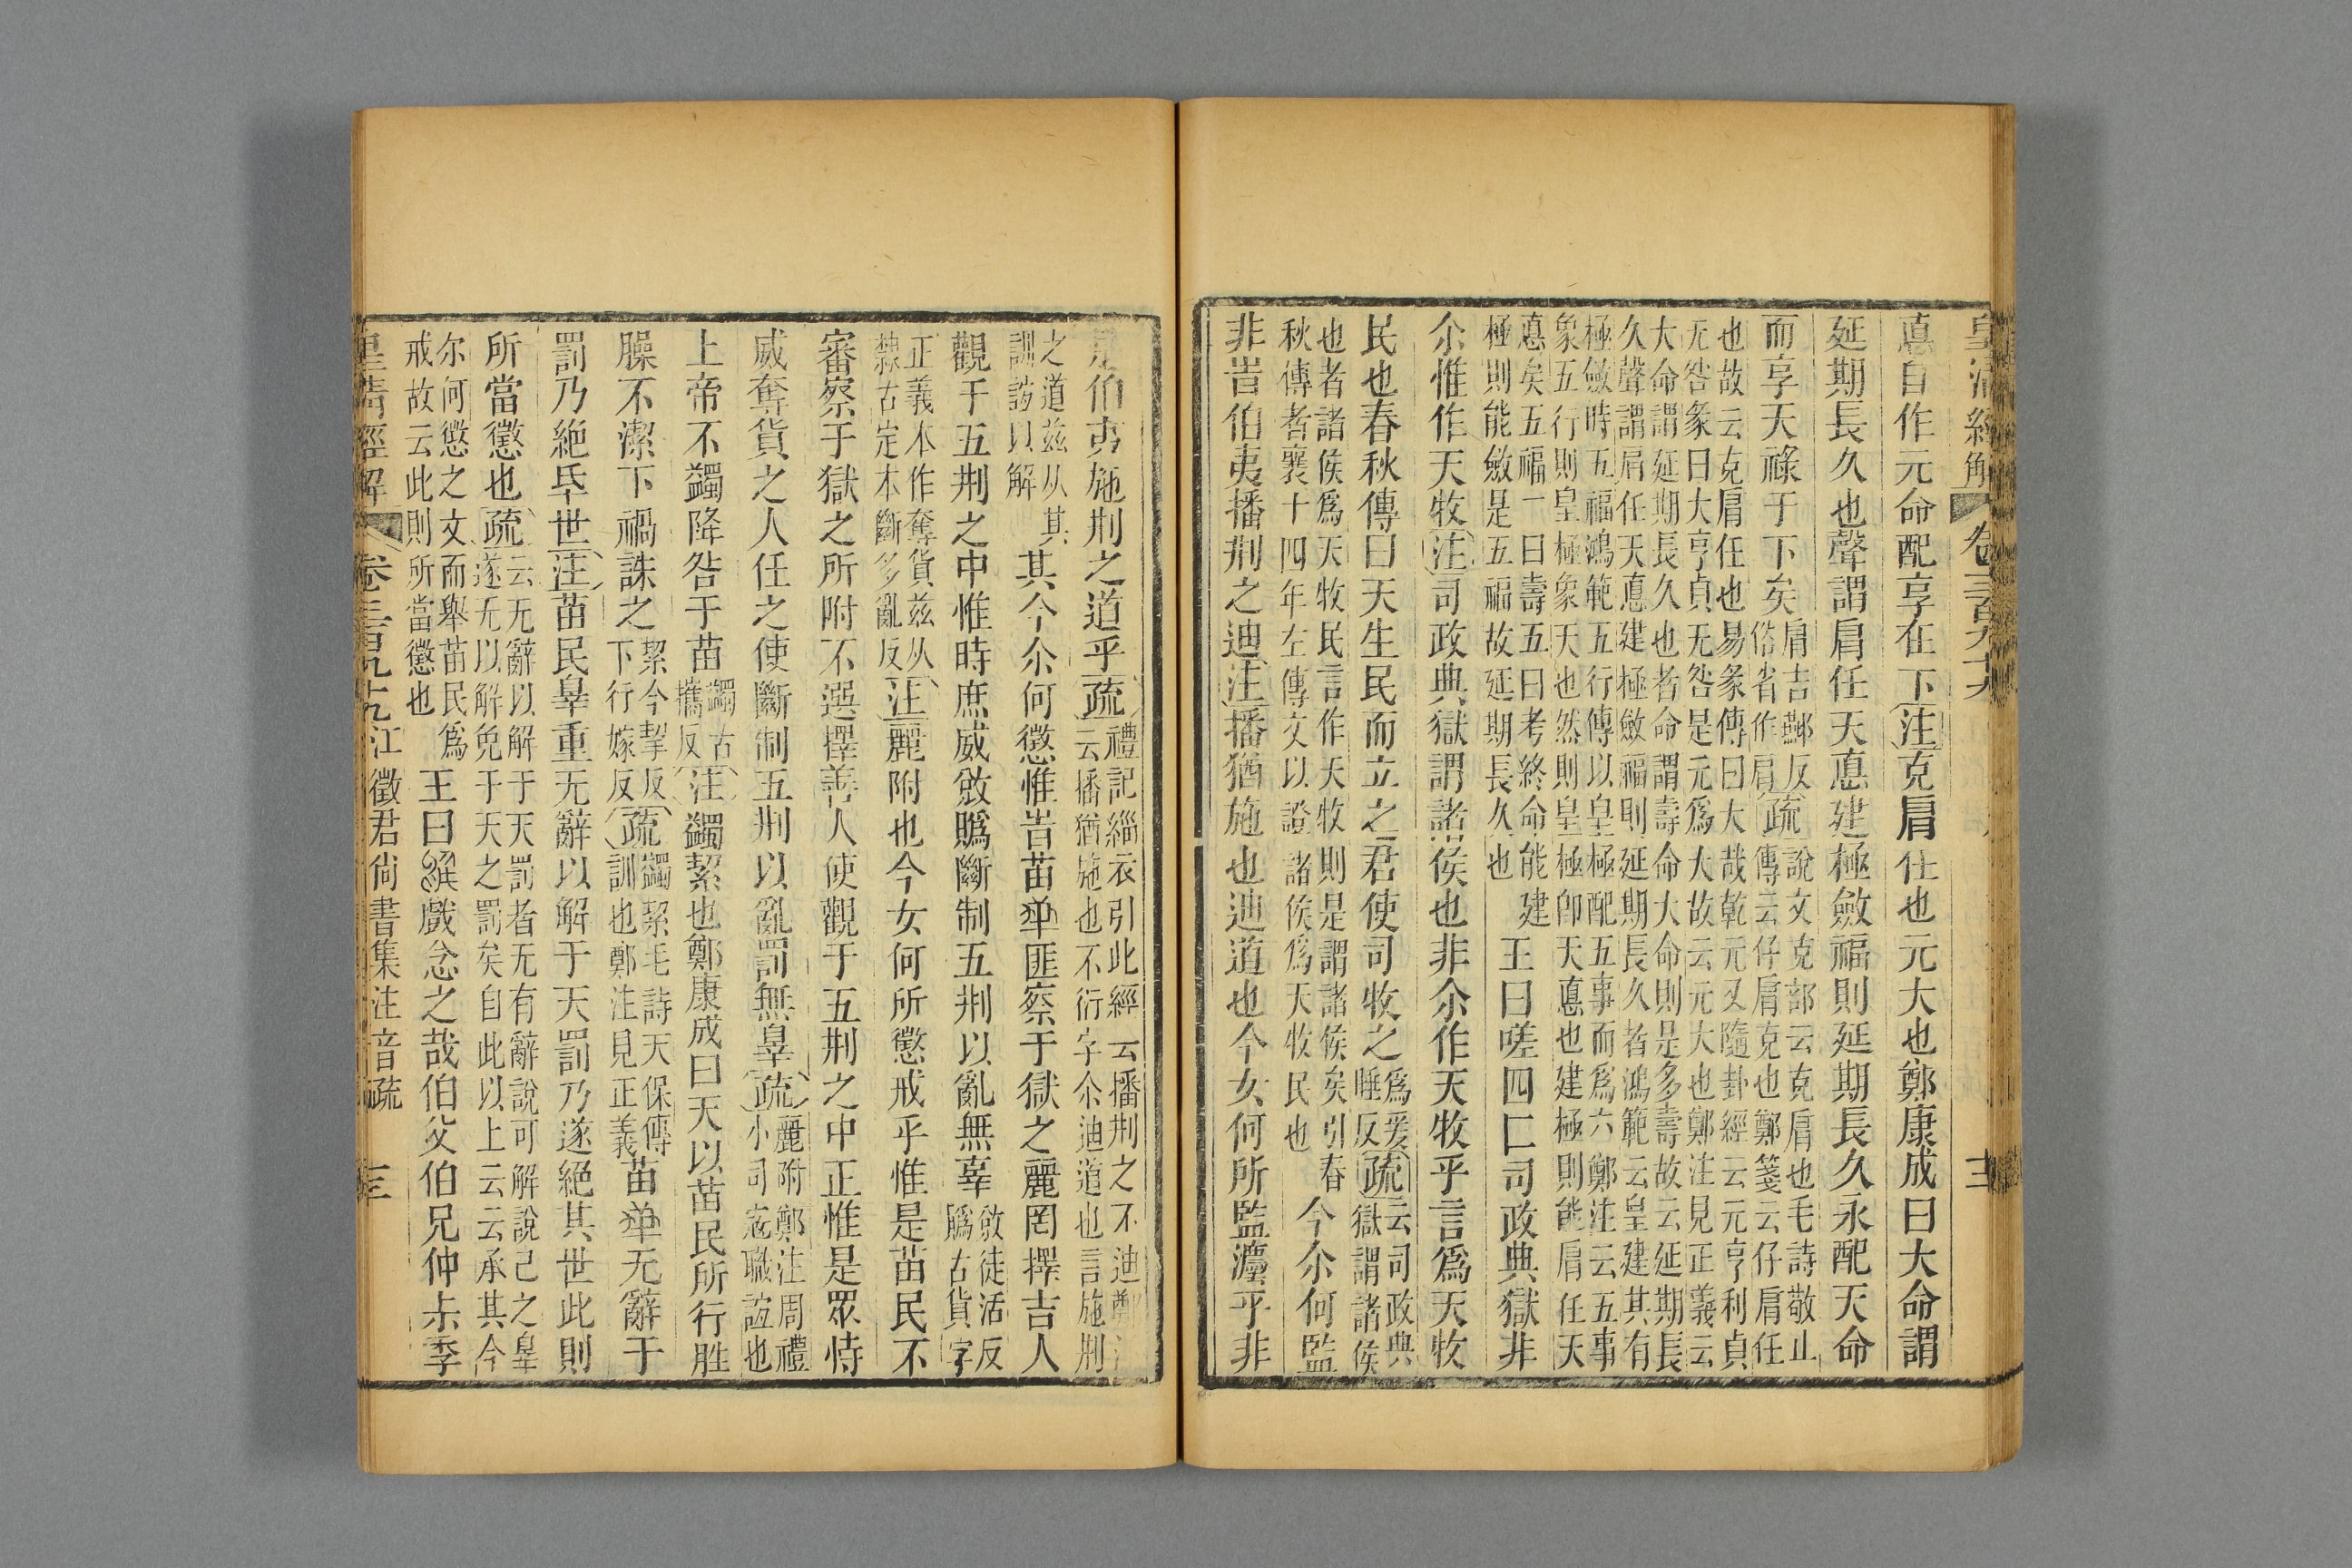 皇清經解 卷三百九十九 十三
悳自作元命配享在下注克肩任也元大也鄭康成曰大命謂
延期長久也聲謂肩任天悳建極斂福則延期長久永配天命
而享天祿于下矣
肩吉鄦反
俗省作肩
疏
說文克部云克肩也毛詩敬止
傳云仔肩克也鄭箋云仔肩任
也故云克肩任也易彖傳曰大哉乾元又隨卦經云元亨利貞
无咎彖曰大亨貞无咎是元爲大故云元大也鄭注見正義云
大命謂延期長久也者命謂壽命大命則是多壽故云延期長
久聲謂肩任天悳建極斂福則延期長久者鴻範云皇建其有
極斂時五福鴻範五行傳以皇極配五事而爲六鄭注云五事
象五行則皇極象天也然則皇極卽天悳也建極則能肩任天
悳矣五福一曰壽五曰考終命能建
極則能斂是五福故延期長久也
王曰嗟四匚司政典獄非
尒惟作天牧注司政典獄謂諸侯也非尒作天牧乎言爲天牧
民也春秋傳曰天生民而立之君使司牧之
爲爰
睡反
疏
云司政典
獄謂諸侯
也者諸侯爲天牧民言作天牧則是謂諸侯矣引春
秋傳者襄十四年左傳文以證諸侯爲天牧民也
今尒何監
非旹伯夷播荆之迪注播猶施也迪道也今女何所監灋乎非
伯夷施荆之道乎疏
禮記緇衣引此經云播荆之不迪鄭注
云播猶施也不衍字尒迪道也言施荆
之道兹从其
訓詁以解
其今尒何懲惟旹苗𢆉匪察于獄之麗罔擇吉人
觀于五荆之中惟時庶威敓賵斷制五荆以亂無辜
敓徒活反
賵古貨字
正義本作奪貨兹从
隸古定本斷多亂反
注麗附也今女何所懲戒乎惟是苗民不
審察于獄之所附不選擇善人使觀于五荆之中正惟是眾恃
威奪貨之人任之使斷制五荆以亂罰無辠疏
麗附鄭注周禮
小司寇職誼也
上帝不蠲降咎于苗
蠲古
攜反
注蠲絜也鄭康成曰天以苗民所行腥
臊不潔下禍誅之
絜今挈反
下行嫁反
疏
蠲絜毛詩天保傳
訓也鄭注見正義
苗𢆉无辭于
罰乃絶氒世注苗民辠重无辭以解于天罰乃遂絕其世此則
所當懲也疏
云无辭以解于天罰者无有辭說可解說己之辠
遂无以解免于天之罰矣自此以上云云承其今
尔何懲之文而舉苗民爲
戒故云此則所當懲也
王曰繄戲念之哉伯父伯兄仲尗季
皇清經解 卷三百九十九 江徵君尙書集注音疏 三